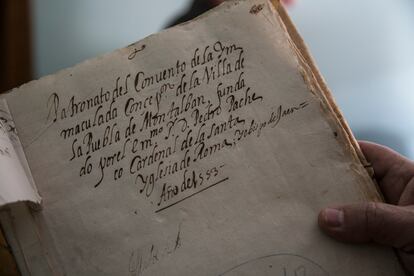 Patronato del Convento de la Ym
maculada Concepon. de la Villa de
la Puebla de Montalban, funda
do por el Emmo. S. D. Pedro Pache
co Cardenal de la santa
Yglesia de Roma, y obispo de Jaen=
Año de 1553